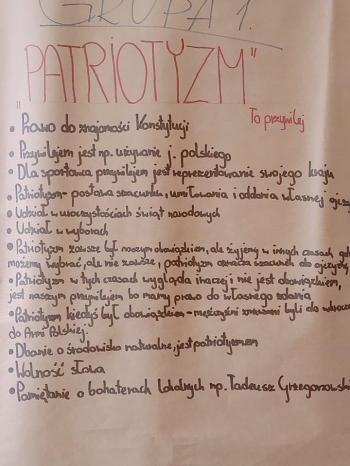 GRUPA 1.
"PATRIOTYZM"
To przywilej
• Prawo do znajomości Konstytucji
• Przywilejem jest np. używanie j. polskiego
• Dla sportowca przywilejem jest reprezentowanie swojego kraju
• Patriotyzm - postawa szacunku, umiłowania i oddania własnej
• Udział w uroczystościach świąt narodowych
• Udział w wyborach
• Patriotyzm zawsze był naszym obowiązkiem, ale żyjemy w innych czasach gdzie
możemy wybrać, ale nie zawsze, patriotyzm oznacza szacunek do ojczyzny
• Patriotyzm w tych czasach wygląda inaczej i nie jest obowiązkiem,
jest naszym przywilejem bo mamy prawo do własnego zdania
• Patriotyzm kiedyś był obowiązkiem - mężczyźni zmuszeni byli do
do Armi Polskiej.
• Dbanie o środowisko naturalne, jest patriotyzmem
• Wolność słowa
• Pamiętanie o bohaterach lokalnych np. Tadeusz